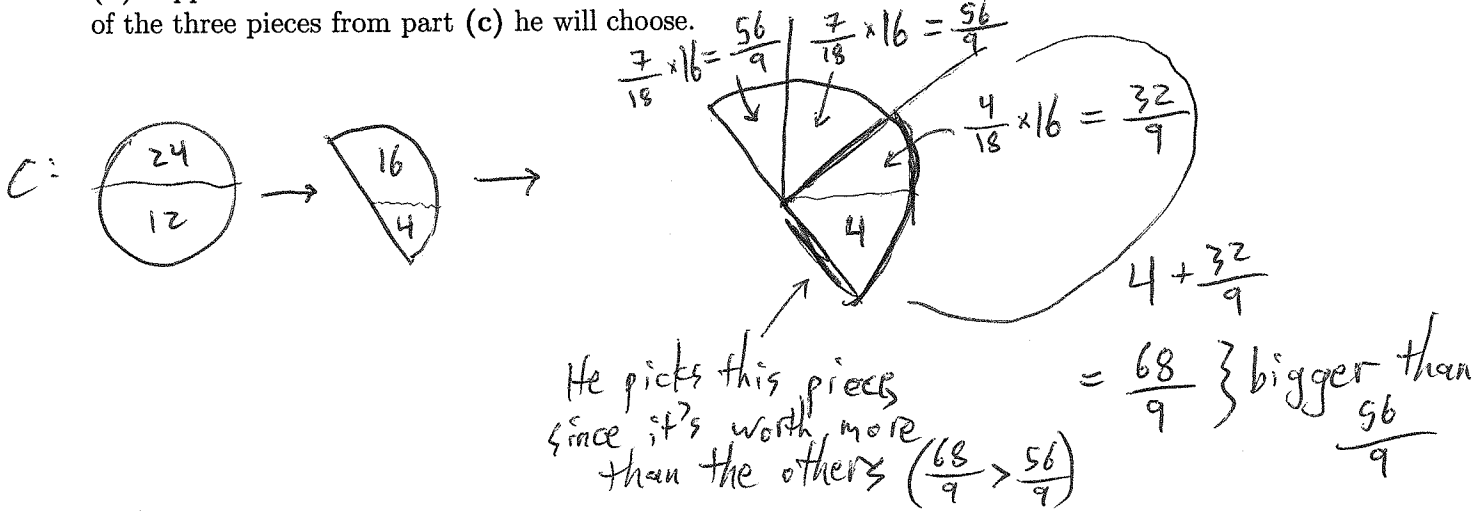 of the three pieces from part (c) he will choose.
7/18 × 16 = 56/9
7/18 × 16 = 56/9
4/18 × 16 = 32/9
C:
24
12
16
4
4
4 + 32/9
= 68/9 } bigger than 56/9
He picks this piece
since it's worth more
than the others (68/9 > 56/9)